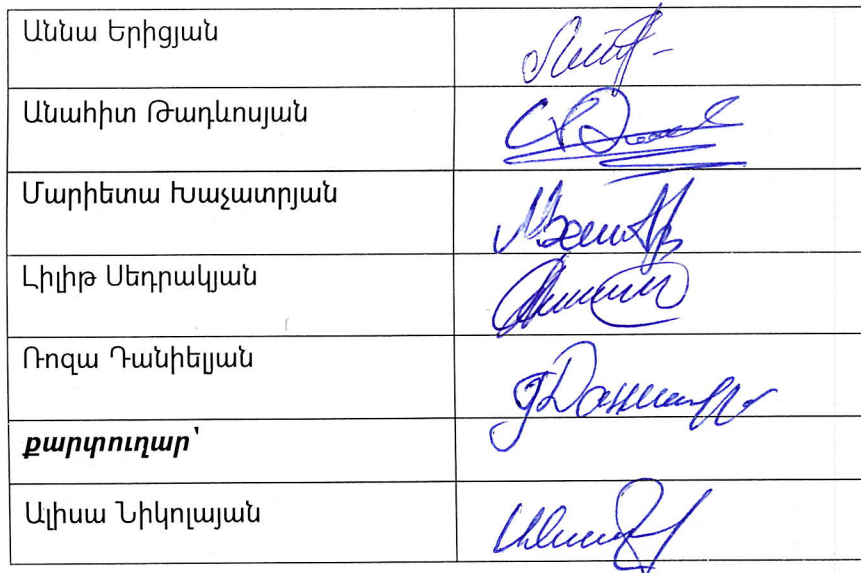 Աննա Երիցյան
Անահիտ Թադևոսյան
Մարիետա Խաչատրյան
Լիլիթ Սեդրակյան
Ռոզա Դանիելյան
քարտուղար՝
Ալիսա Նիկոլայան